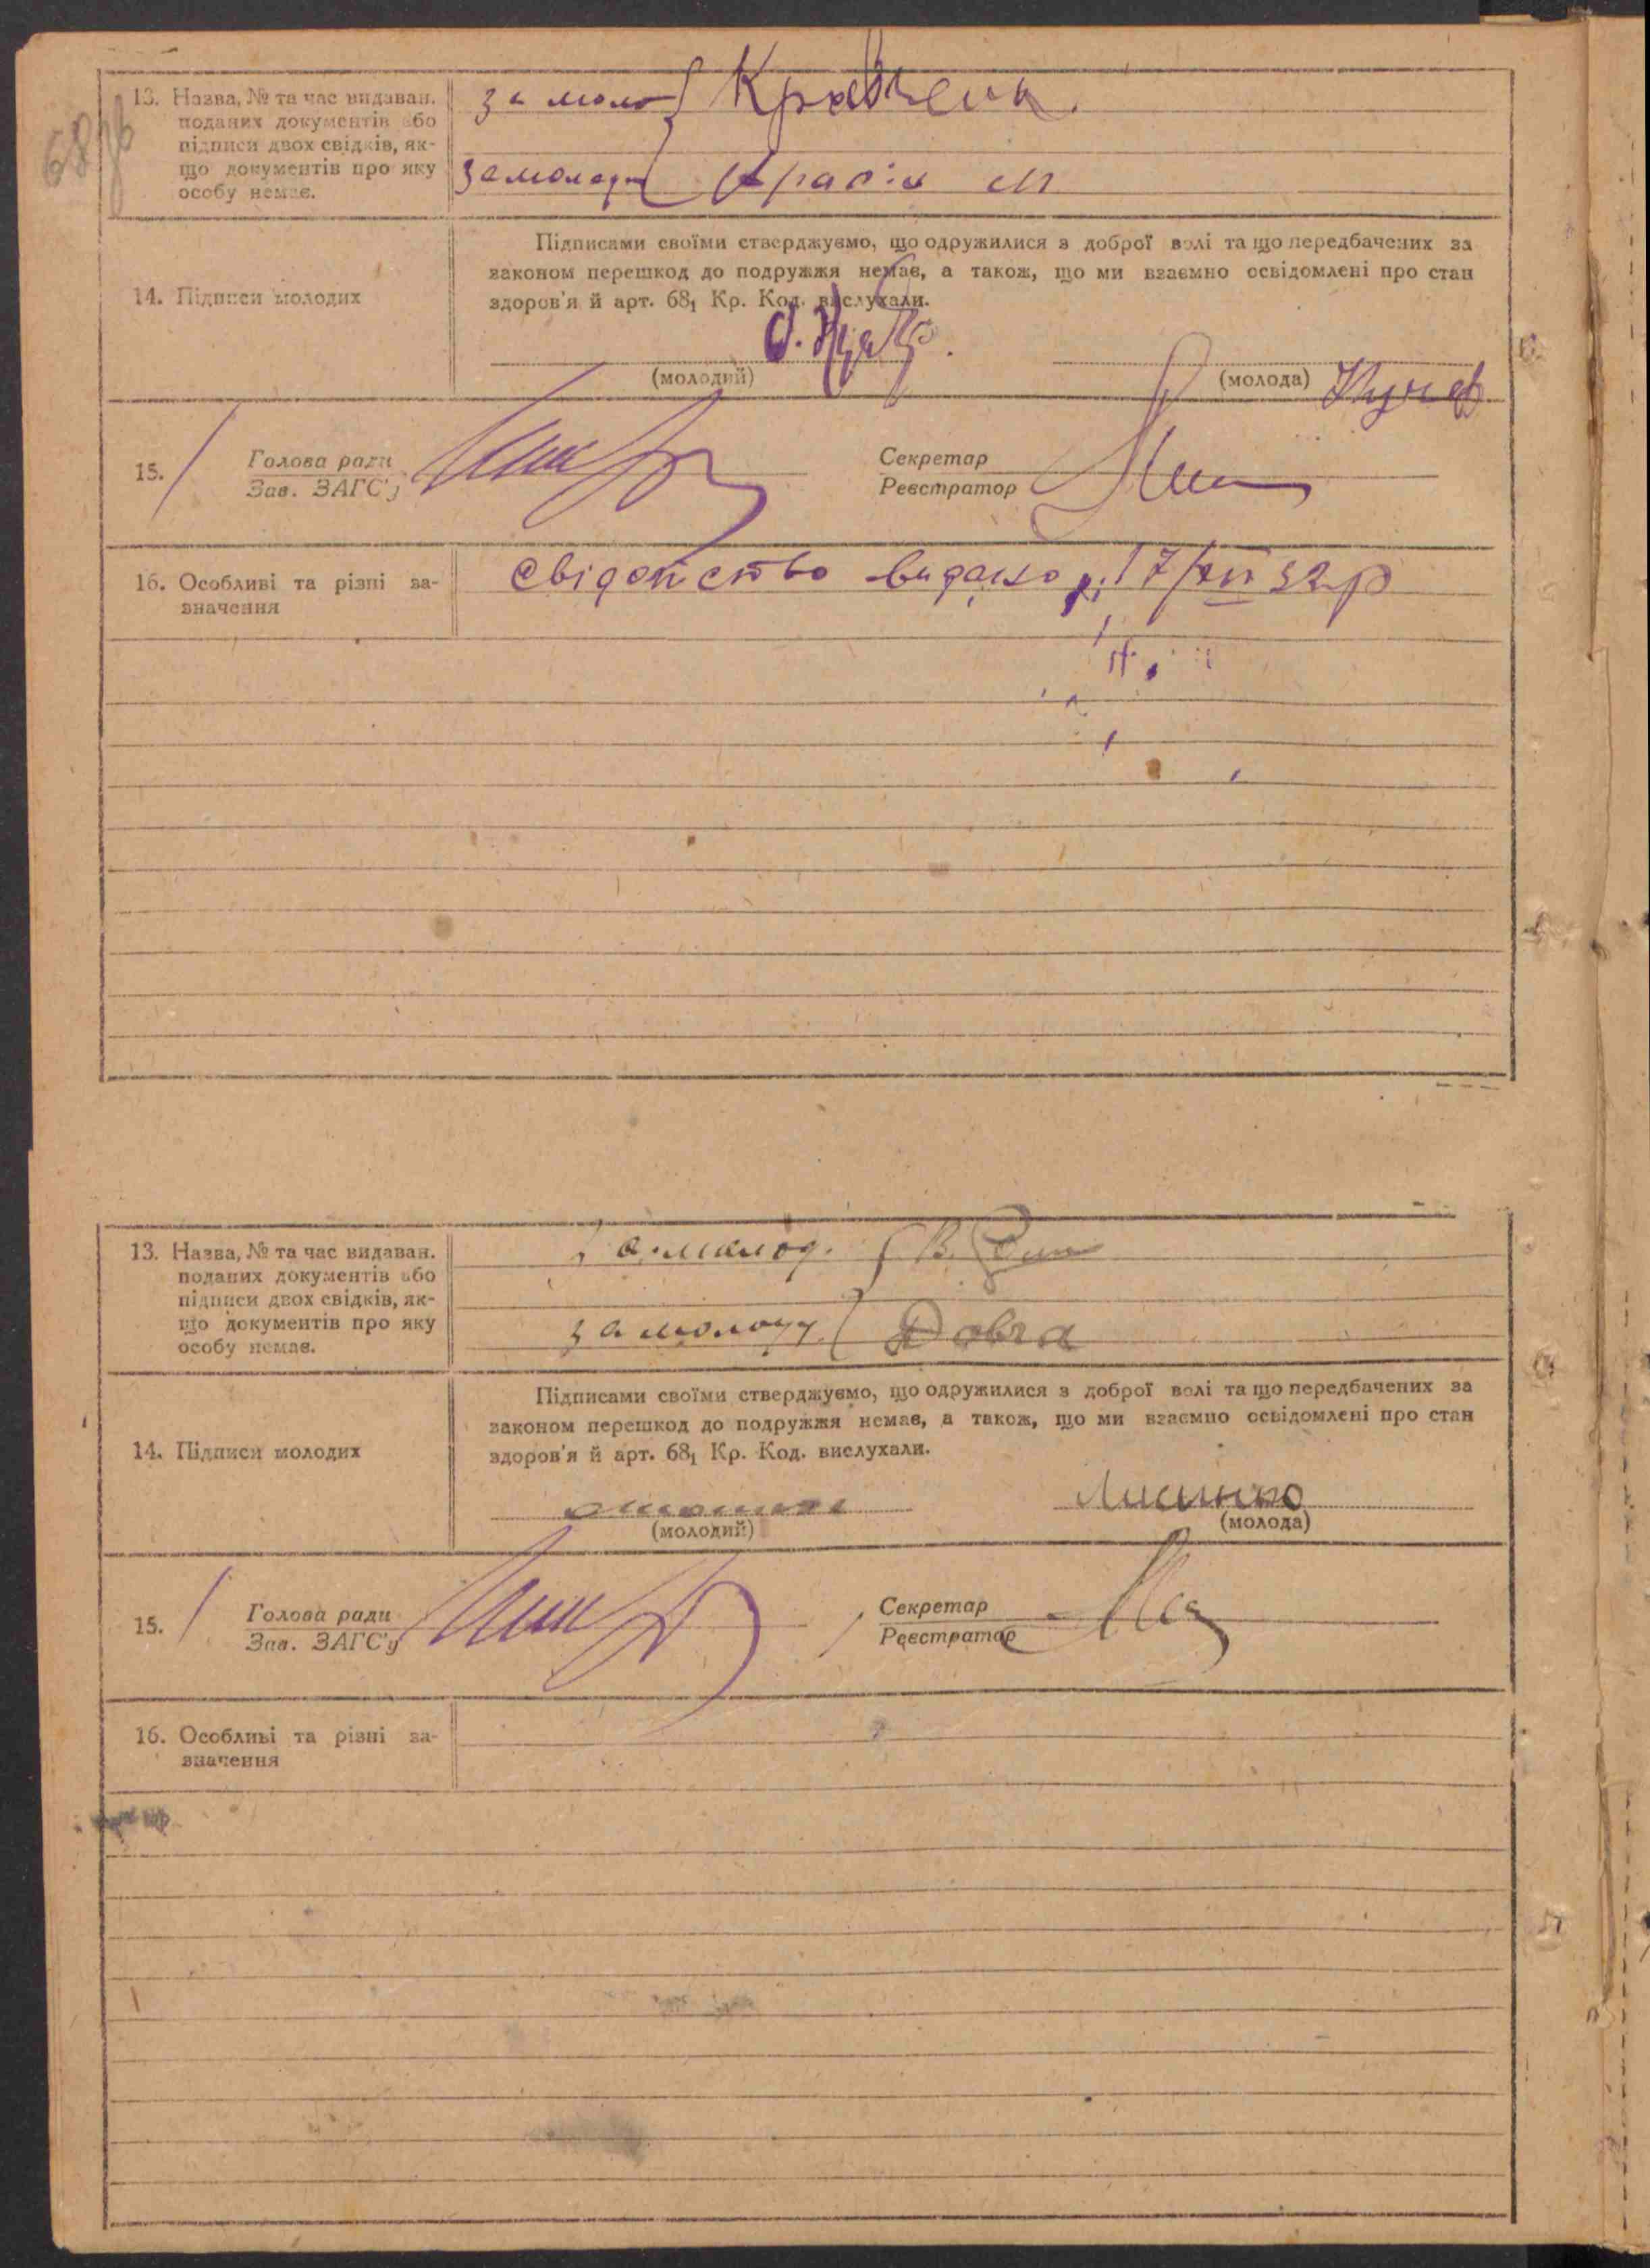 13. Назва, № та час видаван.
поданих документів або
підписи двох свідків, як-
що документів про яку
особу немає.
за моло Кравчена
за молоду
14. Підписи молодих
Підписами своїми стверджуємо, що одружилися з доброї волі та що передбачених за
законом перешкод до подружжя немає, а також, що ми взаємно освідомлені про стан
здоров'я й арт. 68₁ Кр. Код. вислухали.
(молодий) (молода)
15. Голова ради
Зав. ЗАГС'у
Секретар
Реєстратор
16. Особливі та різні за-
значення
свідоцтво видано 17/XII 32 р
13. Назва, № та час видаван.
поданих документів або
підписи двох свідків, як-
що документів про яку
особу немає.
за молод. В.
за молоду Довга
14. Підписи молодих
Підписами своїми стверджуємо, що одружилися з доброї волі та що передбачених за
законом перешкод до подружжя немає, а також, що ми взаємно освідомлені про стан
здоров'я й арт. 68₁ Кр. Код. вислухали.
Лисинко
(молодий) (молода)
15. Голова ради
Зав. ЗАГС'у
Секретар
Реєстратор
16. Особливі та різні за-
значення